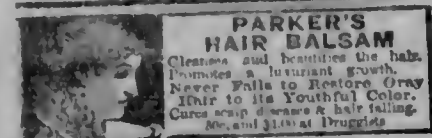 PARKER'S
HAIR BALSAM
Cleanses and beautifies the hair.
Promotes a luxuriant growth.
Never Fails to Restore Gray
Hair to its Youthful Color.
Cures scalp diseases & hair falling.
50c, and $1.00 at Druggists